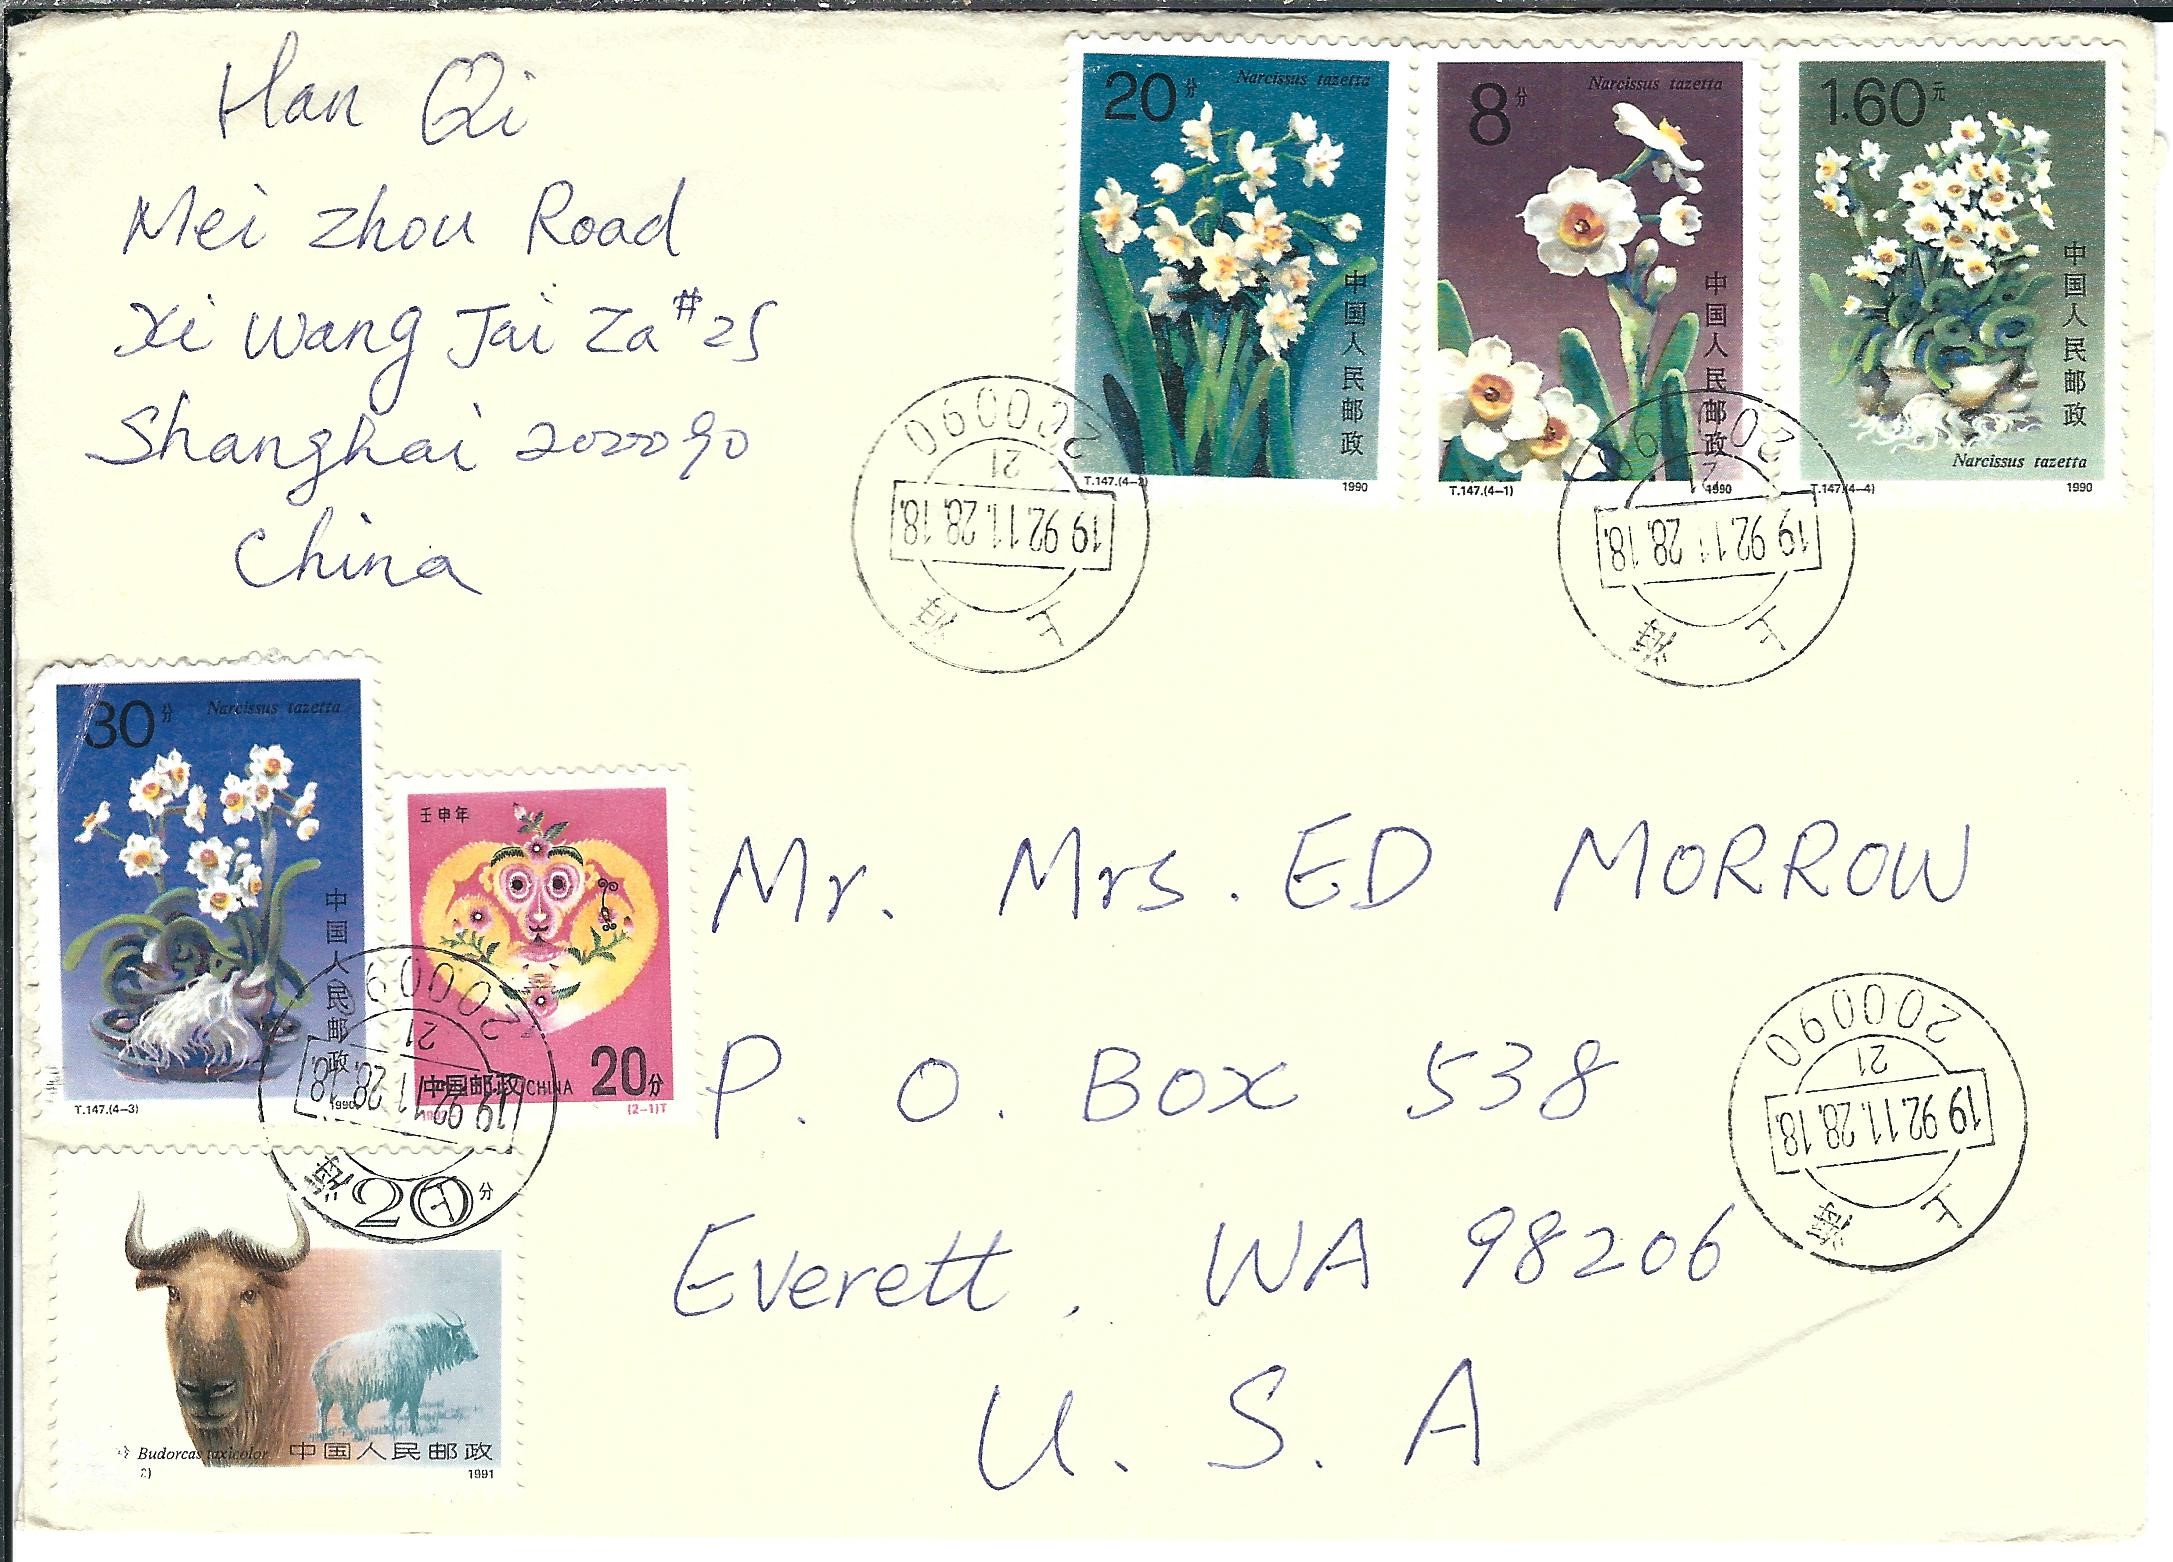 Han Qi
Mei Zhou Road
Xi Wang Jai Za #25
Shanghai 2000090
China
20分 Narcissus tazetta
中国人民邮政
T.147.(4-2) 1990
8分 Narcissus tazetta
中国人民邮政
T.147.(4-1) 1990
1.60元
中国人民邮政
Narcissus tazetta
T.147.(4-4) 1990
200090
21
1992.11.28.18.
上海
200090
21
1992.11.28.18.
上海
30分 Narcissus tazetta
中国人民邮政
T.147.(4-3) 1990
壬申年
中国邮政 CHINA 20分
1992- (2-1)T
20009
21
1992.11.28.18.
上海
20分
Budorcas taxicolor 中国人民邮政
2) 1991
Mr. Mrs. ED MORROW
P. O. BOX 538
Everett, WA 98206
U. S. A
200090
21
1992.11.28.18.
上海